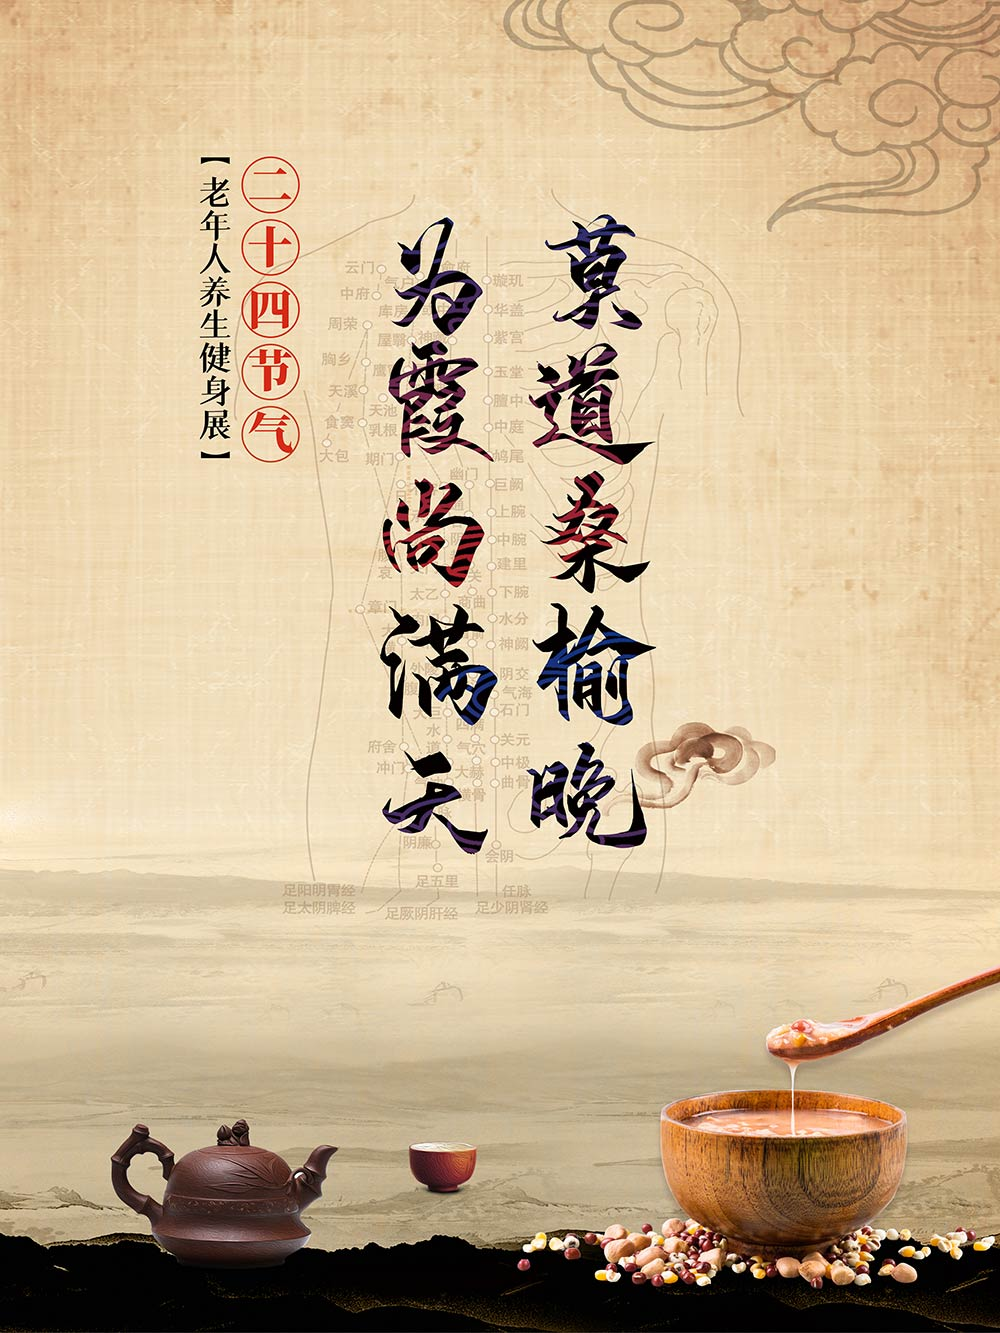 莫道桑榆晚
为霞尚满天
二十四节气
【老年人养生健身展】
云门
中府
周荣
胸乡
天溪
食窦
大包
气户
库房
屋翳
天池
乳根
期门
璇玑
华盖
紫宫
玉堂
膻中
中庭
鸠尾
巨阙
上脘
中脘
建里
下脘
水分
神阙
阴交
气海
石门
关元
中极
曲骨
会阴
幽门
太乙
商曲
章门
府舍
冲门
气穴
大赫
横骨
阴廉
足五里
足阳明胃经
足太阴脾经
足厥阴肝经
任脉
足少阴肾经